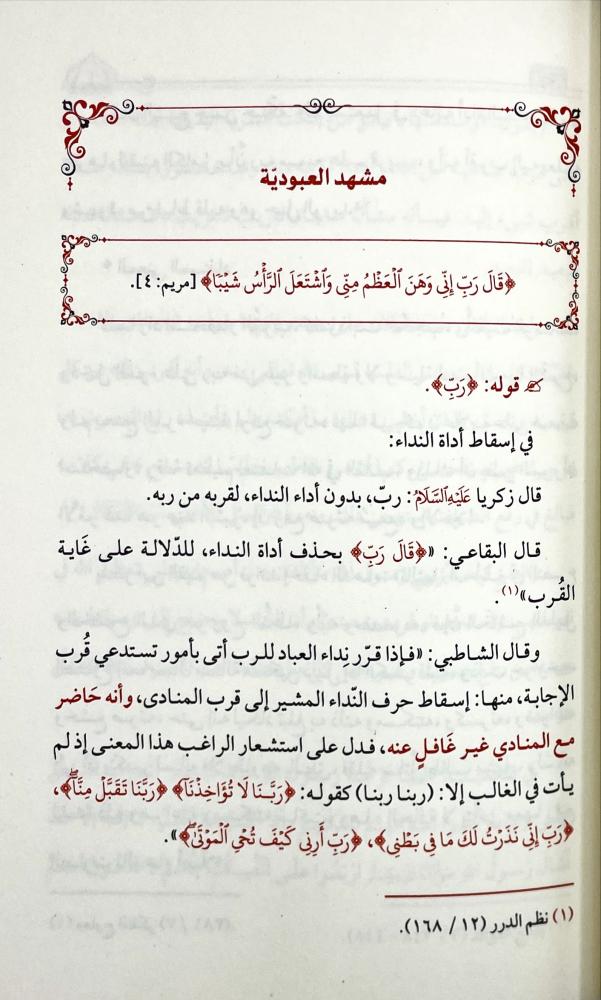 مشهد العبوديّة
﴿قَالَ رَبِّ إِنِّي وَهَنَ ٱلۡعَظۡمُ مِنِّي وَٱشۡتَعَلَ ٱلرَّأۡسُ شَيۡبٗا﴾ [مريم: ٤].
قوله: ﴿رَبِّ﴾.
في إسقاط أداة النداء:
قال زكريا عَلَيْهِ السَّلَامُ: ربّ، بدون أداء النداء، لقربه من ربه.
قال البقاعي: «﴿قَالَ رَبِّ﴾ بحذف أداة النداء، للدّلالة على غَاية
القُرب»(١).
وقال الشاطبي: «فإذا قرّر نِداء العباد للرب أتى بأمور تستدعي قُرب
الإجابة، منها: إسقاط حرف النّداء المشير إلى قرب المنادى، وأنه حَاضر
مع المنادي غير غَافلٍ عنه، فدل على استشعار الراغب هذا المعنى إذ لم
يأت في الغالب إلا: (ربنا ربنا) كقوله: ﴿رَبَّنَا لَا تُؤَاخِذۡنَآ﴾ ﴿رَبَّنَا تَقَبَّلۡ مِنَّآۖ﴾،
﴿رَبِّ إِنِّي نَذَرۡتُ لَكَ مَا فِي بَطۡنِي﴾، ﴿رَبِّ أَرِنِي كَيۡفَ تُحۡيِ ٱلۡمَوۡتَىٰۖ﴾».
(١) نظم الدرر (١٢ / ١٦٨).